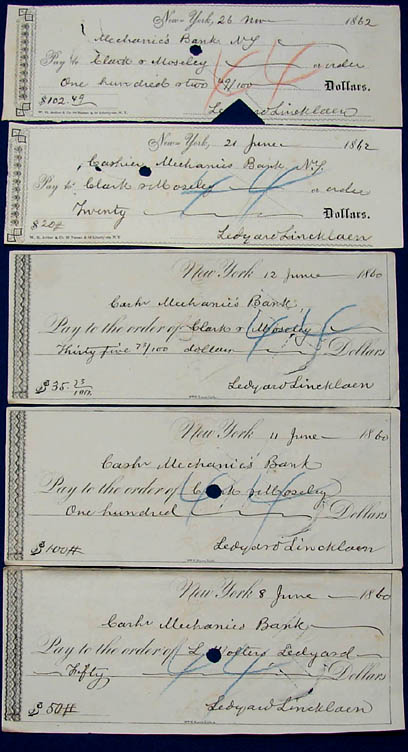 New-York, 26 Nov 1862
Mechanics Bank N.Y.
Pay to Clark & Moseley or order
One hundred & two 49/100 Dollars.
$102.49 Ledyard Lincklaen
New-York, 21 June 1862
Cashier Mechanics Bank N.Y.
Pay to Clark & Moseley or order
Twenty Dollars.
$20# Ledyard Lincklaen
New York 12 June 1860
Cashr Mechanic's Bank
Pay to the order of Clark & Moseley
Thirty five 73/100 dollars Dollars
$35.73/100 Ledyard Lincklaen
New York 11 June 1860
Cashr Mechanics' Bank
Pay to the order of C & Moseley
One hundred Dollars
$100# Ledyard Lincklaen
New York 8 June 1860
Cashr Mechanics Bank
Pay to the order of L. Wolters Ledyard
Fifty Dollars
$50# Ledyard Lincklaen